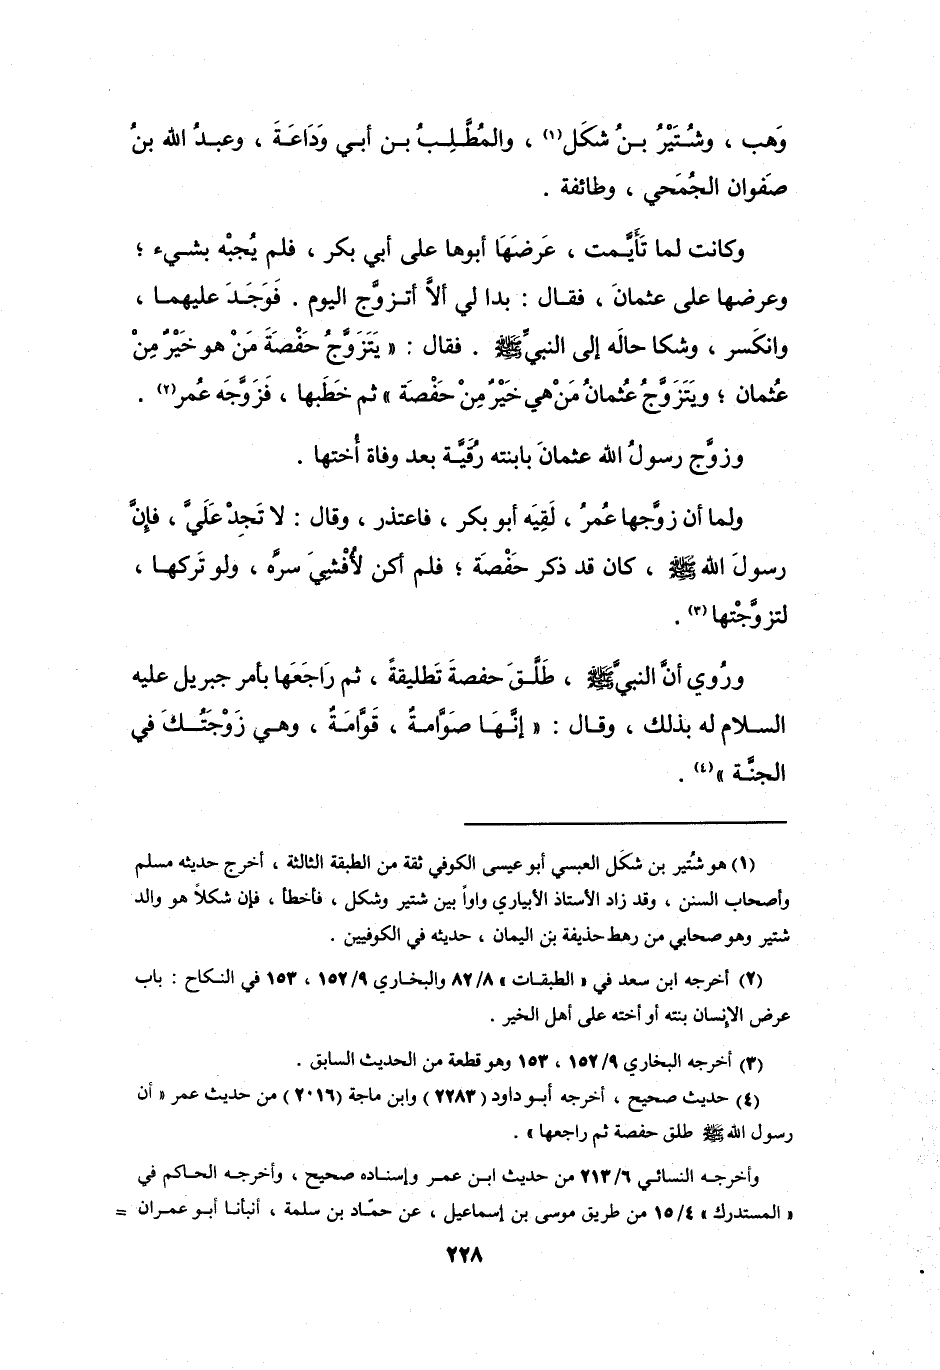 وَهب ، وشُتَيْرُ بـنُ شكَل(١) ، والمُطَّلِـبُ بـن أبـي وَدَاعَـةَ ، وعبـدُ الله بنُ
صَفوان الجُمَحي ، وطائفة .
وكانت لما تَأَيَّـمت ، عَرضَهَا أبوها على أبي بكر ، فلم يُجِبْه بشـيء ؛
وعرضها على عثمانَ ، فقـال : بدا لي ألاَّ أتـزوَّج اليوم . فَوَجَـدَ عليهمـا ،
وانكَسر ، وشكا حالَه إلى النبيِّ ﷺ . فقال : « يَتَزَوَّجُ حَفْصَةَ مَنْ هو خَيْرٌ مِنْ
عُثمان ؛ ويَتَزَوَّجُ عُثمانُ مَنْ هي خَيْرٌ مِنْ حَفْصَة » ثم خطَبها ، فَزَوَّجَه عُمر(٢) .
وزوَّج رسولُ الله عثمانَ بابنته رُقَيَّـة بعد وفاة أُختها .
ولما أن زوَّجها عُمرُ ، لَقِيَه أبو بكر ، فاعتذر ، وقال : لا تَجِدْ عَلَيَّ ، فإنَّ
رسولَ الله ﷺ ، كان قد ذكر حَفْصَة ؛ فلم أكن لأُفْشِيَ سرَّه ، ولو تركهـا ،
لتزوَّجْتها(٣) .
ورُوي أنَّ النبيَّ ﷺ ، طَلَّـقَ حفصةَ تَطليقةً ، ثم رَاجَعَها بأمر جبريل عليه
السـلام له بذلك ، وقـال : « إنَّـهَـا صَوَّامـةٌ ، قَوَّامَـةٌ ، وهـي زَوْجَتُــكَ في
الجنَّـة »(٤) .
(١) هو شُتَير بن شكَل العبسي أبو عيسى الكوفي ثقة من الطبقة الثالثة ، أخرج حديثه مسلم
وأصحاب السنن ، وقد زاد الأستاذ الأبياري واواً بين شتير وشكل ، فأخطأ ، فإن شكلاً هو والد
شتير وهو صحابي من رهط حذيفة بن اليمان ، حديثه في الكوفيين .
(٢) أخرجه ابن سعد في « الطبقـات » ٨٢/٨ والبخـاري ١٥٢/٩ ، ١٥٣ في النـكاح : باب
عرض الإنسان بنته أو أخته على أهل الخير .
(٣) أخرجه البخاري ١٥٢/٩ ، ١٥٣ وهو قطعة من الحديث السابق .
(٤) حديث صحيح ، أخرجه أبـو داود (٢٢٨٣) وابن ماجة (٢٠١٦) من حديث عمر « أن
رسول الله ﷺ طلق حفصة ثم راجعها » .
وأخرجـه النسائـي ٢١٣/٦ من حديث ابـن عمـر وإسنـاده صحيح ، وأخرجـه الحـاكم في
« المستدرك » ١٥/٤ من طريق موسى بن إسماعيل ، عن حمّـاد بن سلمة ، أنبأنـا أبـو عمـران =
٢٢٨